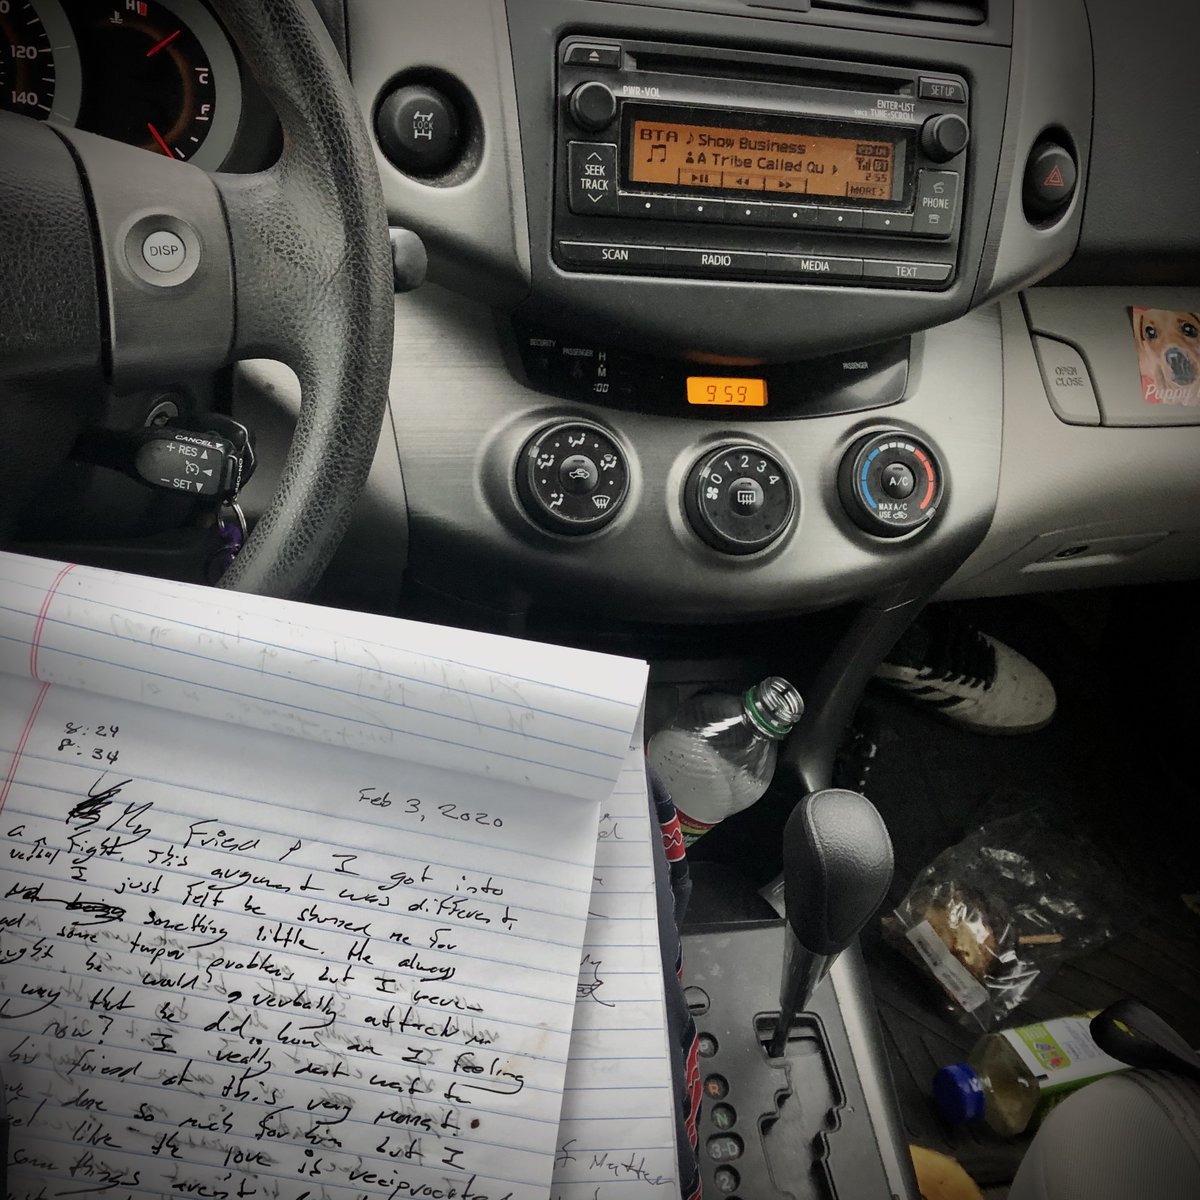 120
140
H
C
F
LOCK
DISP
CANCEL
+ RES
- SET
PWR•VOL
SET UP
ENTER•LIST
TUNE•SCROLL
SEEK
TRACK
BTA ♪ Show Business
A Tribe Called Qu
2:55
MORE>
PHONE
SCAN
RADIO
MEDIA
TEXT
SECURITY
PASSENGER
H
M
:00
PASSENGER
9:59
OPEN
CLOSE
Puppy
0 1 2 3 4
A/C
MAX A/C
USE
8:24
8:34
Feb 3, 2020
My Friend & I got into
a verbal Fight. This argument was different,
I just felt he shunned me for
something little. He always
some temper problems but I never
he would verbally attack
way that he did. how am I feeling
now? I really dont want to
his friend at this very moment.
done so much for him but I
like the love is reciprocated
some things arent
Matter
R
N
3-D
2